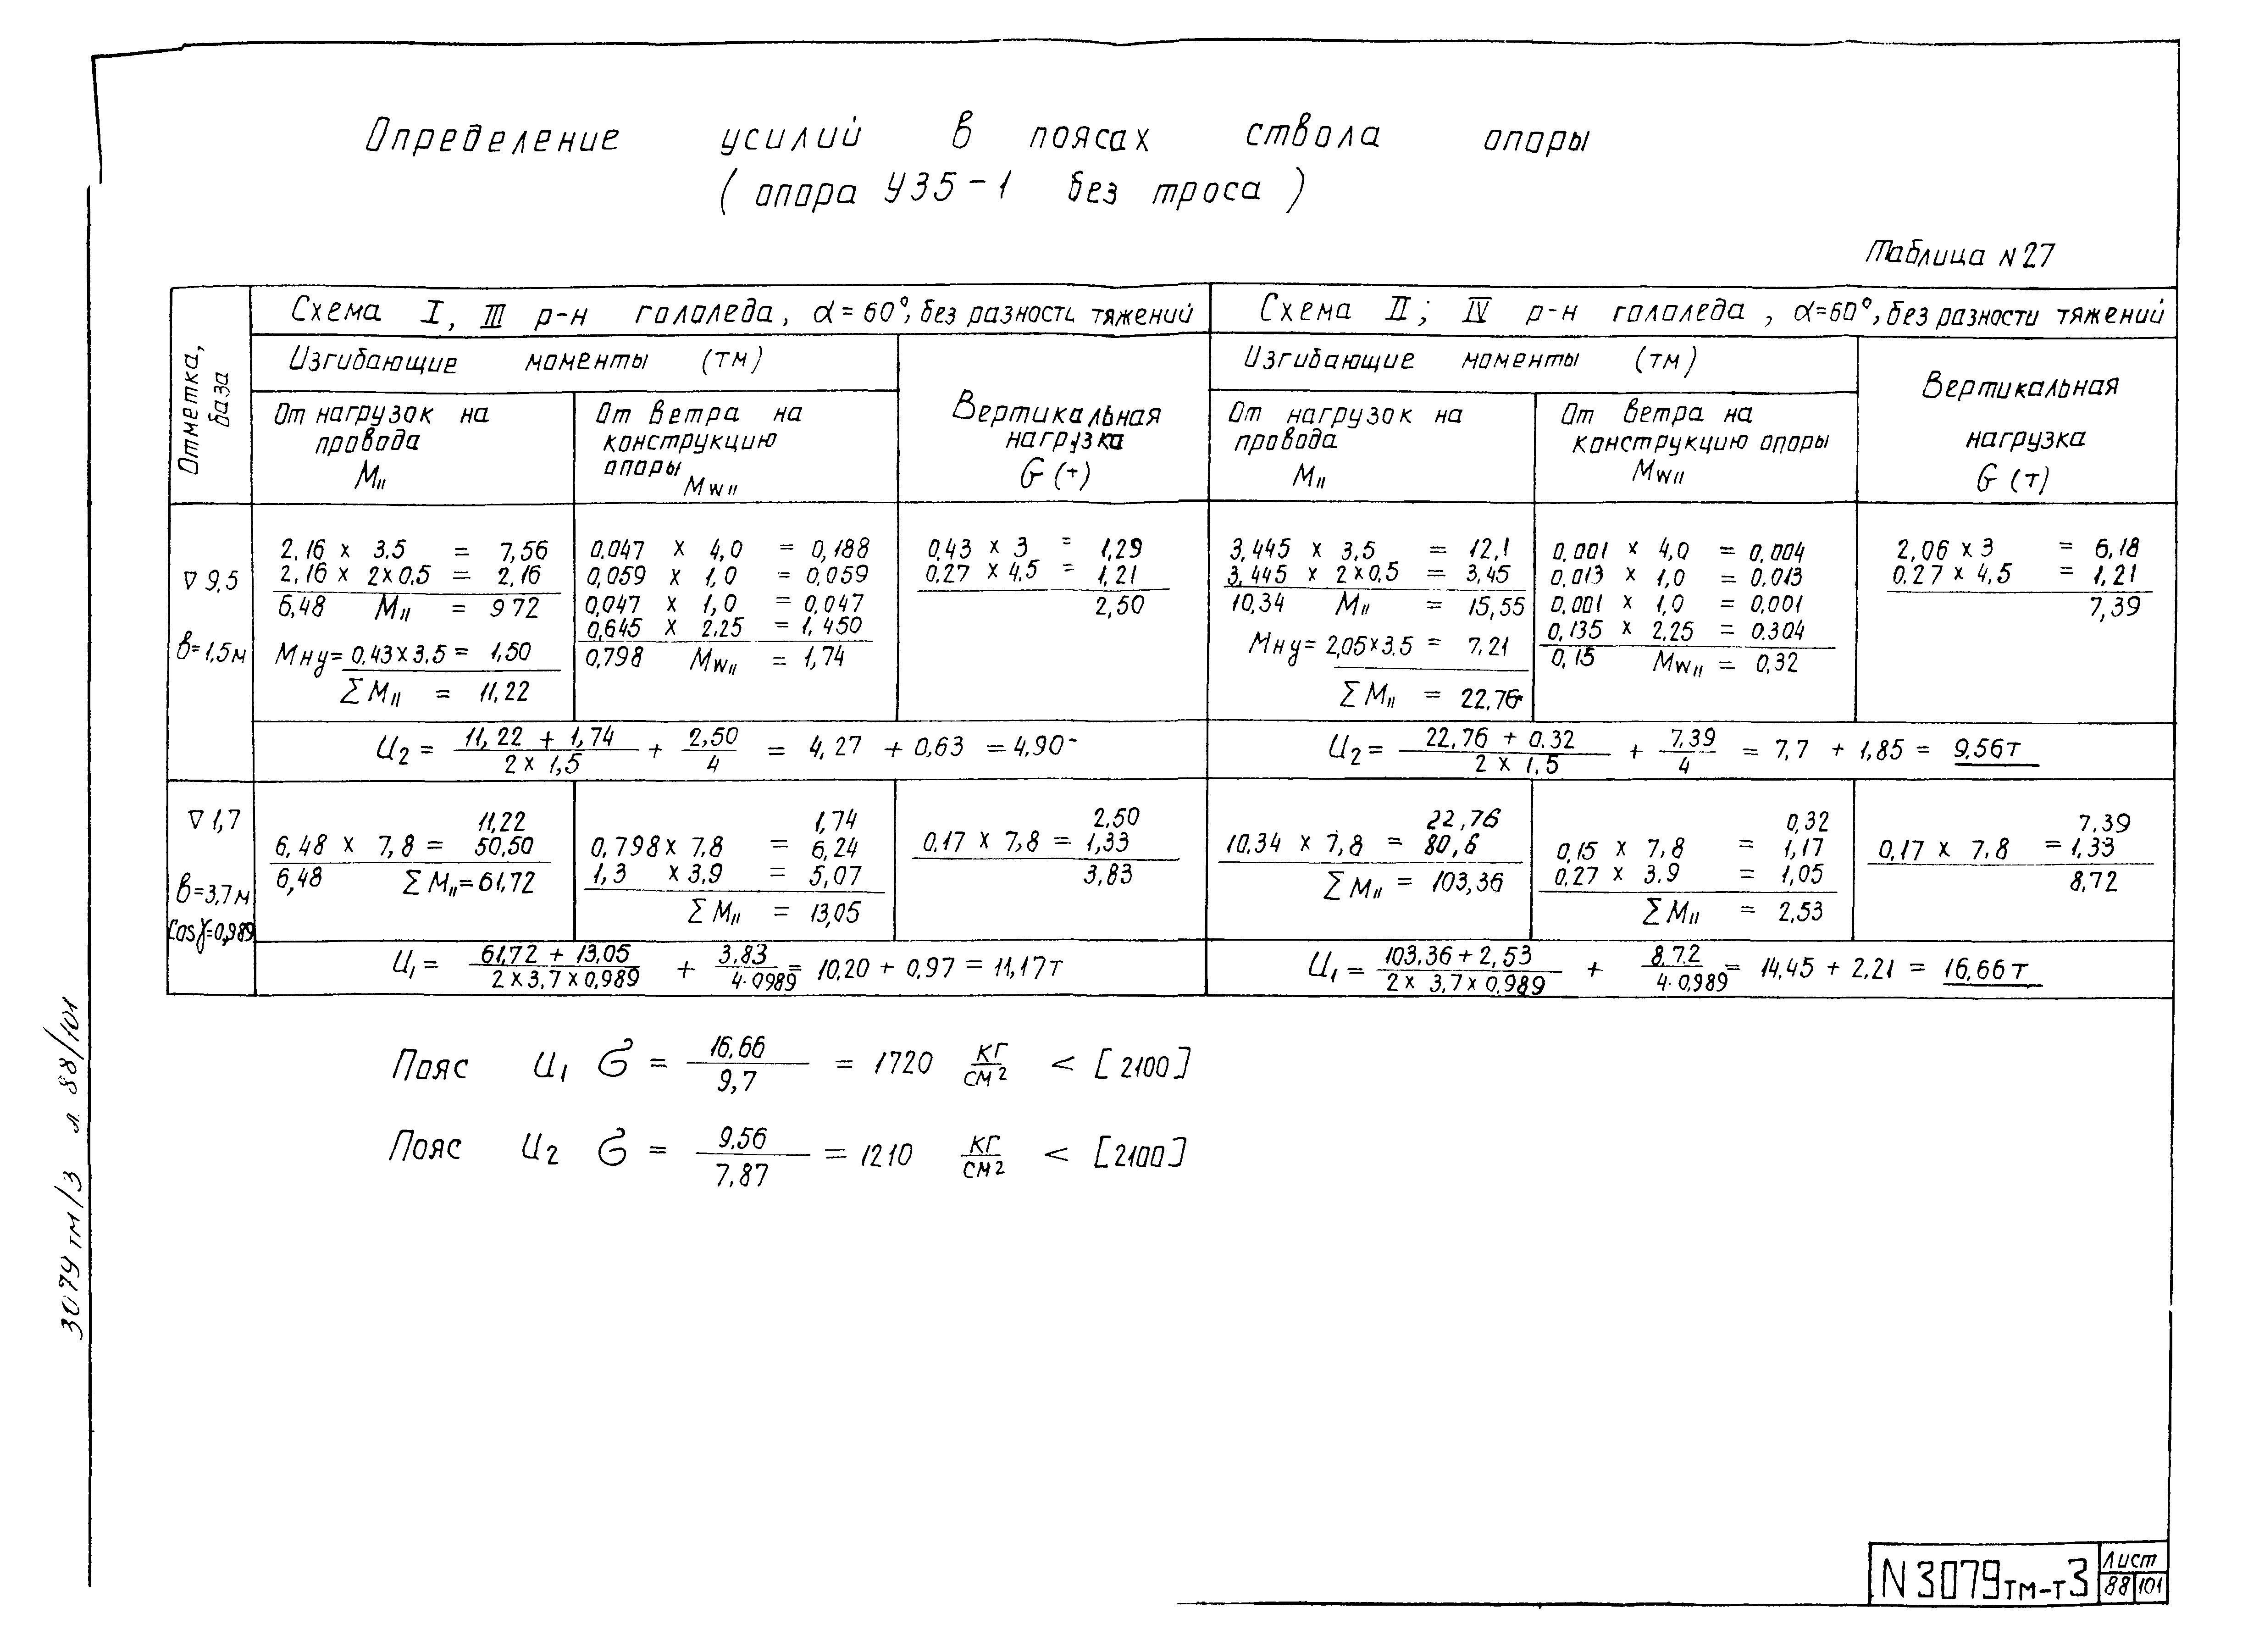 Определение усилий в поясах ствола опоры
( опора У35-1 без троса )
Таблица N 27
Отметка, база
Схема I, III р-н гололеда, α = 60°, без разности тяжений
Схема II; IV р-н гололеда, α=60°, без разности тяжений
Изгибающие моменты (тм)
Вертикальная
нагрузка
G (т)
Изгибающие моменты (тм)
Вертикальная
нагрузка
G (т)
От нагрузок на
провода
Mıı
От ветра на
конструкцию
опоры Mwıı
От нагрузок на
провода
Mıı
От ветра на
конструкцию опоры
Mwıı
∇ 9,5
в=1,5м
2,16 x 3.5 = 7,56
2,16 x 2x0,5 = 2,16
6,48 Mıı = 9 72
Mну= 0,43x3.5 = 1,50
ΣMıı = 11,22
0,047 x 4,0 = 0,188
0,059 x 1,0 = 0,059
0,047 x 1,0 = 0,047
0,645 x 2.25 = 1,450
0,798 Mwıı = 1,74
0,43 x 3 = 1,29
0,27 x 4,5 = 1,21
2,50
3,445 x 3,5 = 12,1
3,445 x 2x0,5 = 3,45
10,34 Mıı = 15,55
Mну= 2,05x3.5 = 7,21
ΣMıı = 22,76
0,001 x 4,0 = 0,004
0,013 x 1,0 = 0,013
0,001 x 1,0 = 0,001
0,135 x 2,25 = 0.304
0,15 Mwıı = 0,32
2,06 x 3 = 6,18
0,27 x 4,5 = 1,21
7,39
U2 = 11,22 + 1,74 / 2 x 1,5 + 2,50 / 4 = 4,27 + 0,63 = 4,90
U2 = 22,76 + 0.32 / 2 x 1,5 + 7,39 / 4 = 7,7 + 1,85 = 9,56т
∇ 1,7
в=3,7м
Cosγ=0,989
11,22
6,48 x 7,8 = 50,50
6,48 ΣMıı=61,72
1,74
0,798x 7,8 = 6,24
1,3 x 3,9 = 5,07
ΣMıı = 13,05
2,50
0,17 x 7,8 = 1,33
3,83
22,76
10,34 x 7,8 = 80,6
ΣMıı = 103,36
0,32
0,15 x 7,8 = 1,17
0,27 x 3.9 = 1,05
ΣMıı = 2,53
7,39
0,17 x 7,8 = 1,33
8,72
U1 = 61,72 + 13,05 / 2 x 3,7 x 0,989 + 3,83 / 4·0989 = 10,20 + 0,97 = 11,17т
U1 = 103,36 + 2,53 / 2 x 3,7 x 0,989 + 8,72 / 4·0,989 = 14,45 + 2,21 = 16,66т
Пояс U1 σ = 16,66 / 9,7 = 1720 кг/см2 < [2100]
Пояс U2 σ = 9,56 / 7,87 = 1210 кг/см2 < [2100]
3079 тм/3 л. 88/101
N3079тм-т3
Лист
88 101